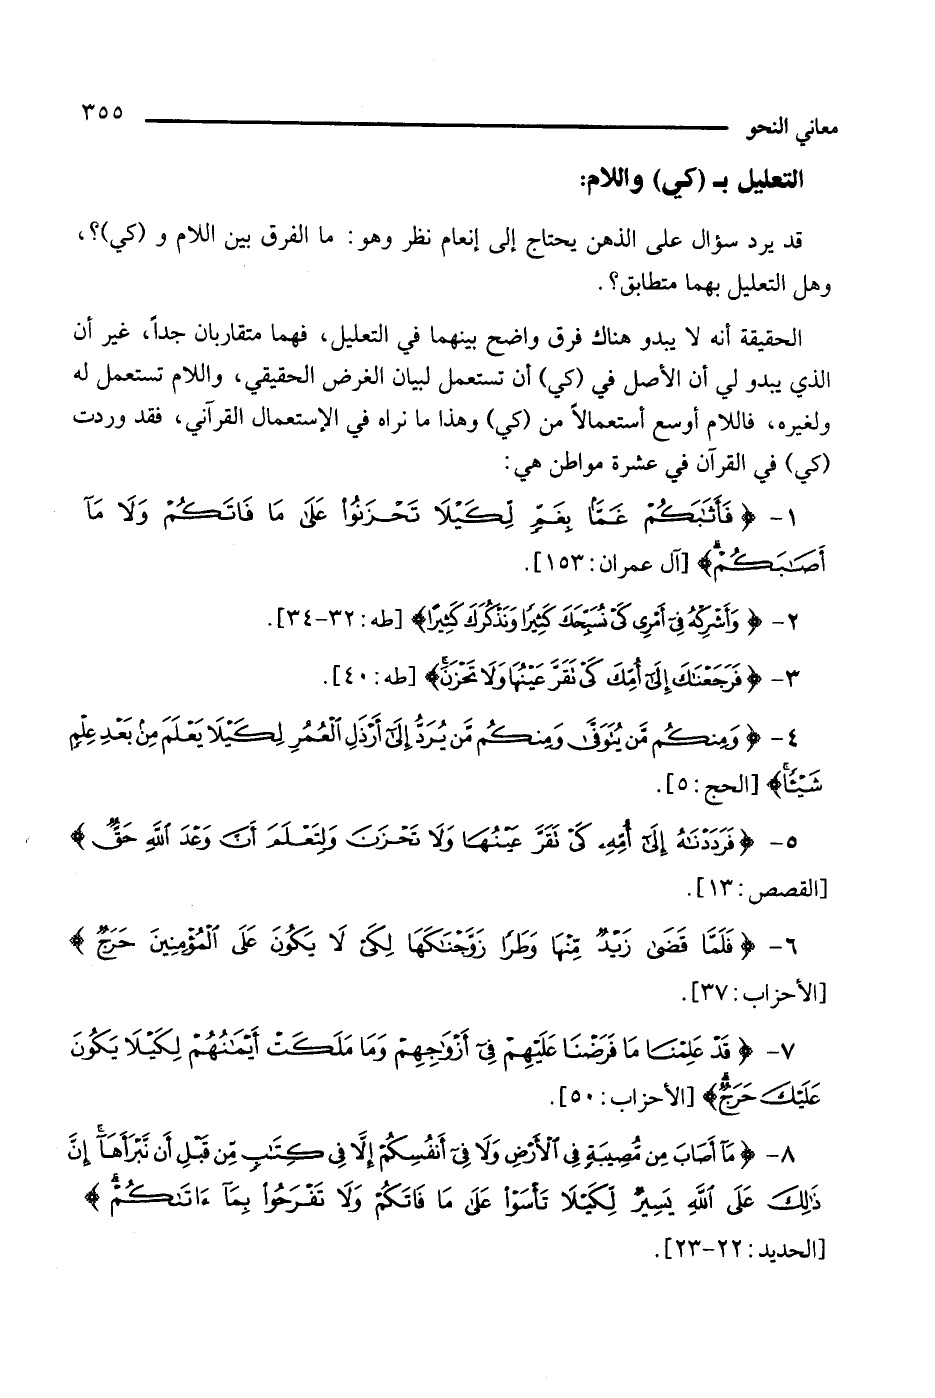 معاني النحو ٣٥٥
التعليل بـ (كي) واللام:
قد يرد سؤال على الذهن يحتاج إلى إنعام نظر وهو: ما الفرق بين اللام و (كي)؟،
وهل التعليل بهما متطابق؟.
الحقيقة أنه لا يبدو هناك فرق واضح بينهما في التعليل، فهما متقاربان جداً، غير أن
الذي يبدو لي أن الأصل في (كي) أن تستعمل لبيان الغرض الحقيقي، واللام تستعمل له
ولغيره، فاللام أوسع أستعمالاً من (كي) وهذا ما نراه في الإستعمال القرآني، فقد وردت
(كي) في القرآن في عشرة مواطن هي:
١- ﴿ فَأَثَٰبَكُمْ غَمًّۢا بِغَمٍّ لِّكَيْلَا تَحْزَنُوا۟ عَلَىٰ مَا فَاتَكُمْ وَلَا مَآ
أَصَٰبَكُمْ ۗ﴾ [آل عمران: ١٥٣].
٢- ﴿ وَأَشْرِكْهُ فِىٓ أَمْرِى كَىْ نُسَبِّحَكَ كَثِيرًا وَنَذْكُرَكَ كَثِيرًا﴾ [طه: ٣٢-٣٤].
٣- ﴿ فَرَجَعْنَٰكَ إِلَىٰٓ أُمِّكَ كَىْ تَقَرَّ عَيْنُهَا وَلَا تَحْزَنَ ۚ﴾ [طه: ٤٠].
٤- ﴿ وَمِنكُم مَّن يُتَوَفَّىٰ وَمِنكُم مَّن يُرَدُّ إِلَىٰٓ أَرْذَلِ ٱلْعُمُرِ لِكَيْلَا يَعْلَمَ مِنۢ بَعْدِ عِلْمٍ
شَيْـًٔا ۚ﴾ [الحج: ٥].
٥- ﴿ فَرَدَدْنَٰهُ إِلَىٰٓ أُمِّهِۦ كَىْ تَقَرَّ عَيْنُهَا وَلَا تَحْزَنَ وَلِتَعْلَمَ أَنَّ وَعْدَ ٱللَّهِ حَقٌّ ﴾
[القصص: ١٣].
٦- ﴿ فَلَمَّا قَضَىٰ زَيْدٌ مِّنْهَا وَطَرًا زَوَّجْنَٰكَهَا لِكَىْ لَا يَكُونَ عَلَى ٱلْمُؤْمِنِينَ حَرَجٌ ﴾
[الأحزاب: ٣٧].
٧- ﴿ قَدْ عَلِمْنَا مَا فَرَضْنَا عَلَيْهِمْ فِىٓ أَزْوَٰجِهِمْ وَمَا مَلَكَتْ أَيْمَٰنُهُمْ لِكَيْلَا يَكُونَ
عَلَيْكَ حَرَجٌ ۗ﴾ [الأحزاب: ٥٠].
٨- ﴿ مَآ أَصَابَ مِن مُّصِيبَةٍ فِى ٱلْأَرْضِ وَلَا فِىٓ أَنفُسِكُمْ إِلَّا فِى كِتَٰبٍ مِّن قَبْلِ أَن نَّبْرَأَهَآ ۚ إِنَّ
ذَٰلِكَ عَلَى ٱللَّهِ يَسِيرٌ لِّكَيْلَا تَأْسَوْا۟ عَلَىٰ مَا فَاتَكُمْ وَلَا تَفْرَحُوا۟ بِمَآ ءَاتَىٰكُمْ ۗ ﴾
[الحديد: ٢٢-٢٣].